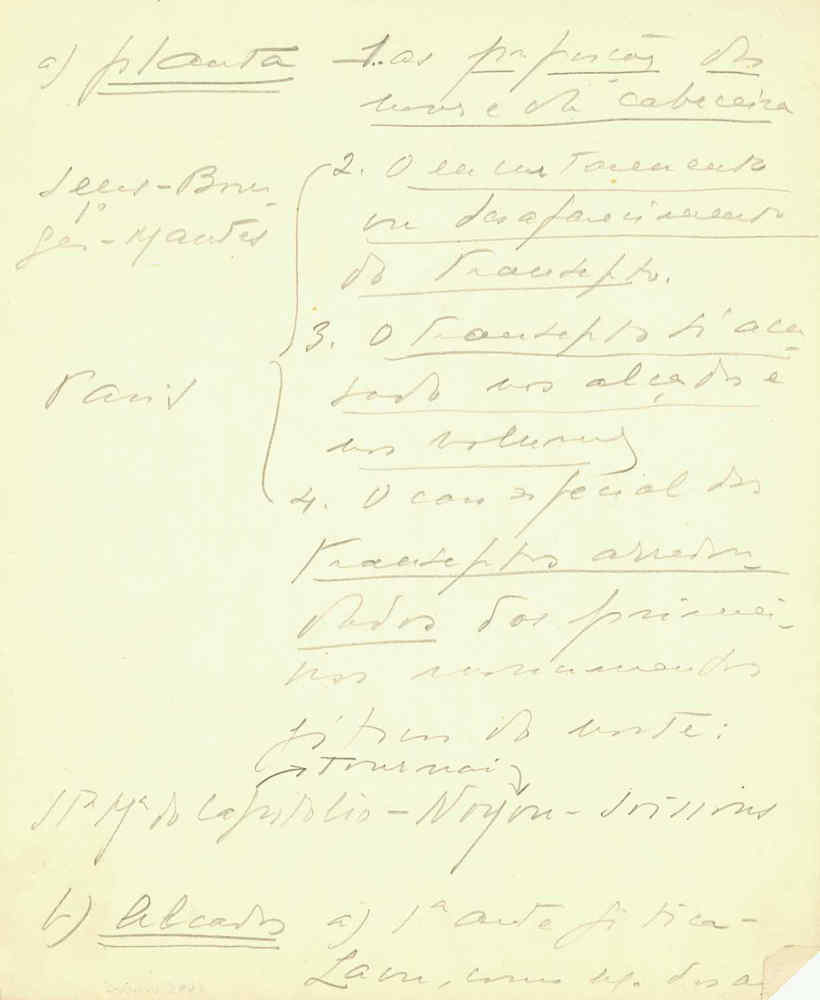 a) planta - 1. as proporções das
naves e da cabeceira
2. O encurtamento
Sens-Bour-
ou desaparecimento
ges-Mantes
do transepto.
3. O transepto só acu-
Paris
sado nos alçados e
nos volumes
4. O caso especial dos
transeptos arredon-
dados dos primei-
ros monumentos
góticos do norte:
Tournai
Sta Ma do Capitólio - Noyon - Soissons
b) Alçados a) 1ª arte gótica -
Laon, como